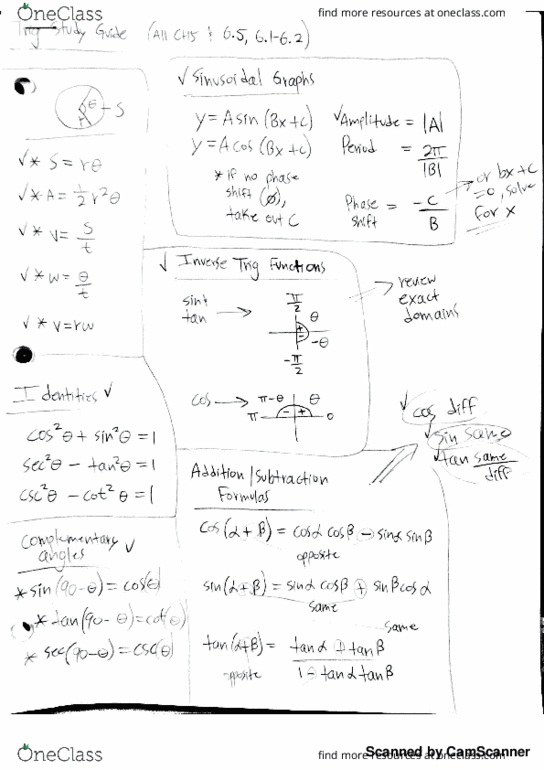 OneClass
find more resources at oneclass.com
Trig Study Guide (All CH5 & 6.5, 6.1-6.2)
θ S
√* S = rθ
√* A = 1/2 r²θ
√* v = S/t
√* w = θ/t
√* v = rw
√ Sinusoidal Graphs
y = A sin (Bx + c)
y = A cos (Bx + c)
* if no phase
shift (∅),
take out C
√Amplitude = |A|
Period = 2π/|B|
Phase shift = -C/B
or bx + c
= 0, solve
for x
√ Inverse Trig Functions
sin &
tan
π/2
θ
+
-
-θ
-π/2
review
exact
domains
cos
π-θ θ
π - + 0
Identities √
cos²θ + sin²θ = 1
sec²θ - tan²θ = 1
csc²θ - cot²θ = 1
√ cos diff
√ sin same
√ tan same/diff
Addition/Subtraction
Formulas
cos(α + β) = cosα cosβ - sinα sinβ
opposite
sin(α + β) = sinα cosβ + sinβ cosα
same
same
tan(α+β) = tanα + tanβ / 1 - tanα tanβ
opposite
Complementary
angles √
* sin(90 - θ) = cos(θ)
* tan(90 - θ) = cot(θ)
* sec(90 - θ) = csc(θ)
Scanned by CamScanner
OneClass
find more resources at oneclass.com